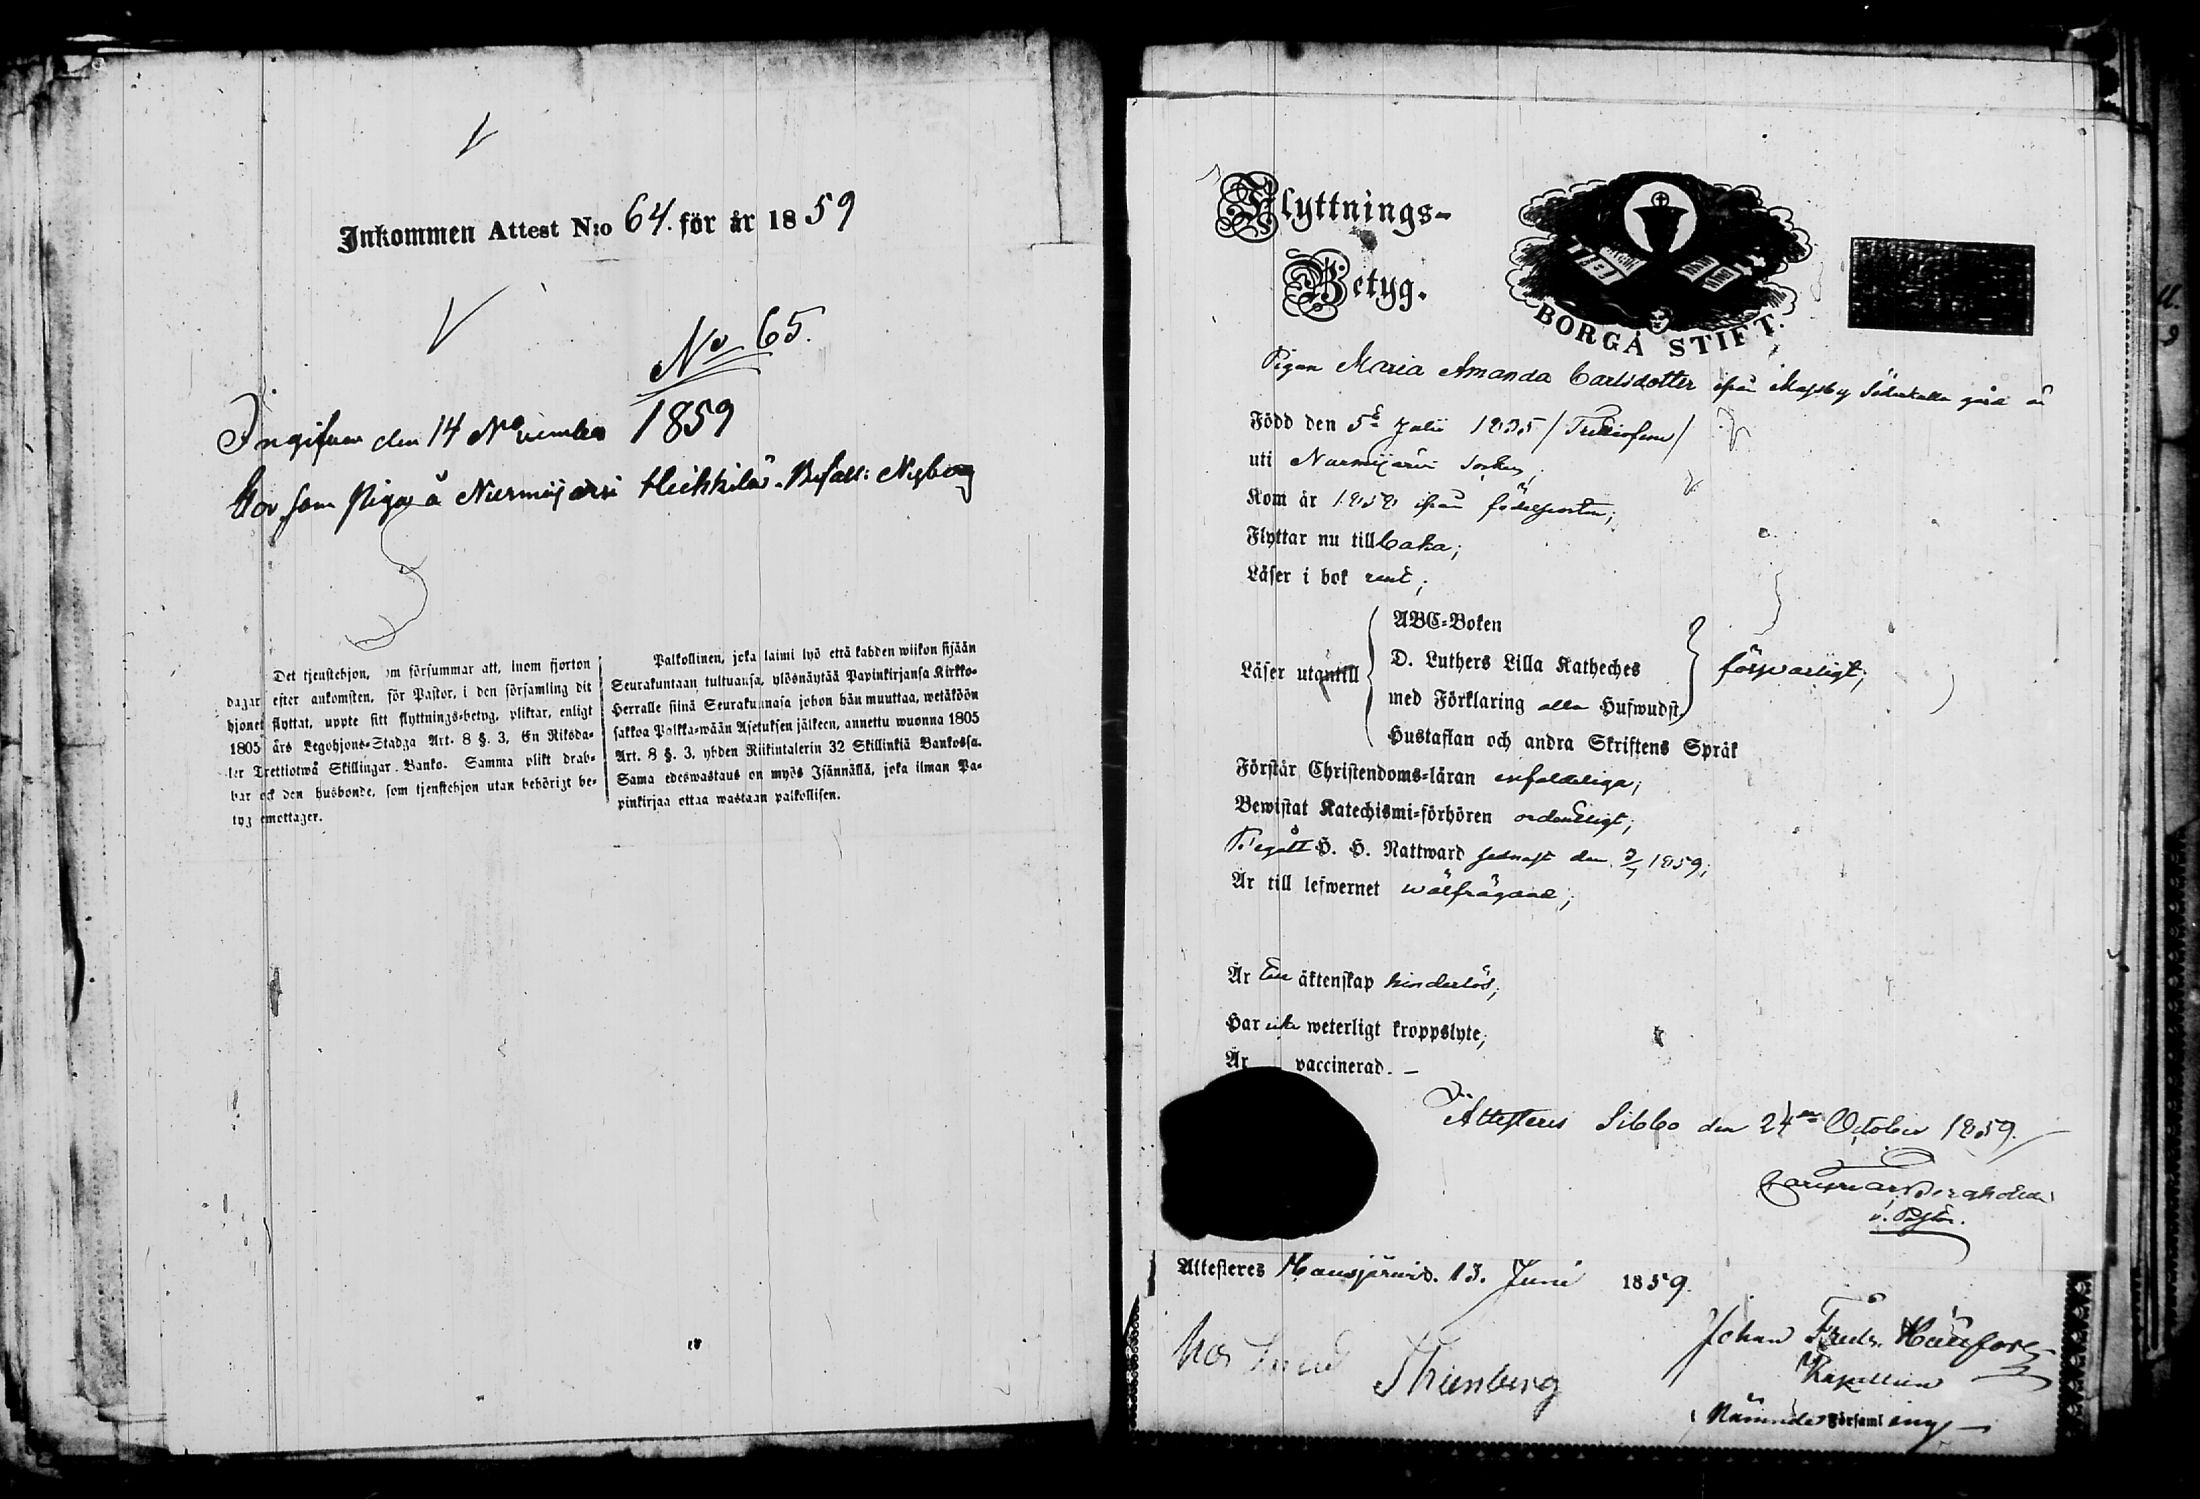 Inkommen Attest N:o 64. för år 1859
No 65.
Ingifven den 14 November 1859
bor som piga å Nurmijärvi Heikkilä. Befall: Nyberg
Det tjenstehjon, om försummar att, inom fjorton
dagar efter ankomsten, för Pastor, i den församling dit
hjonet flyttat, uppte sitt flyttnings-betyg, pliktar, enligt
1805 års Legohjons-Stadga Art. 8 §. 3, En Riksda-
ler Trettiotwå Skillingar Banko. Samma plikt drab-
bar ock den husbonde, som tjenstehjon utan behörigt be-
tyg emottager.
Palkollinen, joka laimi lyö että kahden wiikon sijään
Seurakuntaan tultuansa, ylösnäytää Papinkirjansa Kirkko-
Herralle siinä Seurakunnasa johon hän muuttaa, wetäköön
sakkoa Palkka-wään Asetuksen jälkeen, annettu wuonna 1805
Art. 8 §. 3, yhden Riikintalerin 32 Skillinkiä Bankossa.
Sama edeswastaus on myös Isännällä, joka ilman Pa-
pinkirjaa ottaa wastaan palkollisen.
Flyttnings-
Betyg.
BORGÅ STIFT.
Pigan Maria Amanda Carlsdotter ifrån Söderkulla gård är
Född den 5te Julii 1835 /Trettiofem/
uti Nurmijärvi Socken;
Kom år 1858 ifrån födelseorten;
Flyttar nu tillbaka;
Läser i bok rent;
Läser utantill
ABC-Boken
D. Luthers Lilla Katheches
med Förklaring alla Hufwudst.
Hustaflan och andra Skriftens Språk
försvarligt;
Förstår Christendoms-läran enfaldeliga;
Bewistat Katechismi-förhören ordentligt;
Begått H. H. Nattward sednast den 3/7 1859;
Är till lefwernet wälfrägdad;
Är till äktenskap hinderlös;
Har icke weterligt kroppslyte;
Är vaccinerad. –
Attesteres Sibbo den 24de October 1859.
v. Pastor.
Attesteres Hausjärvi d. 13. Juni 1859.
Johan Fredr.
Kapellan
Nämnde Församling